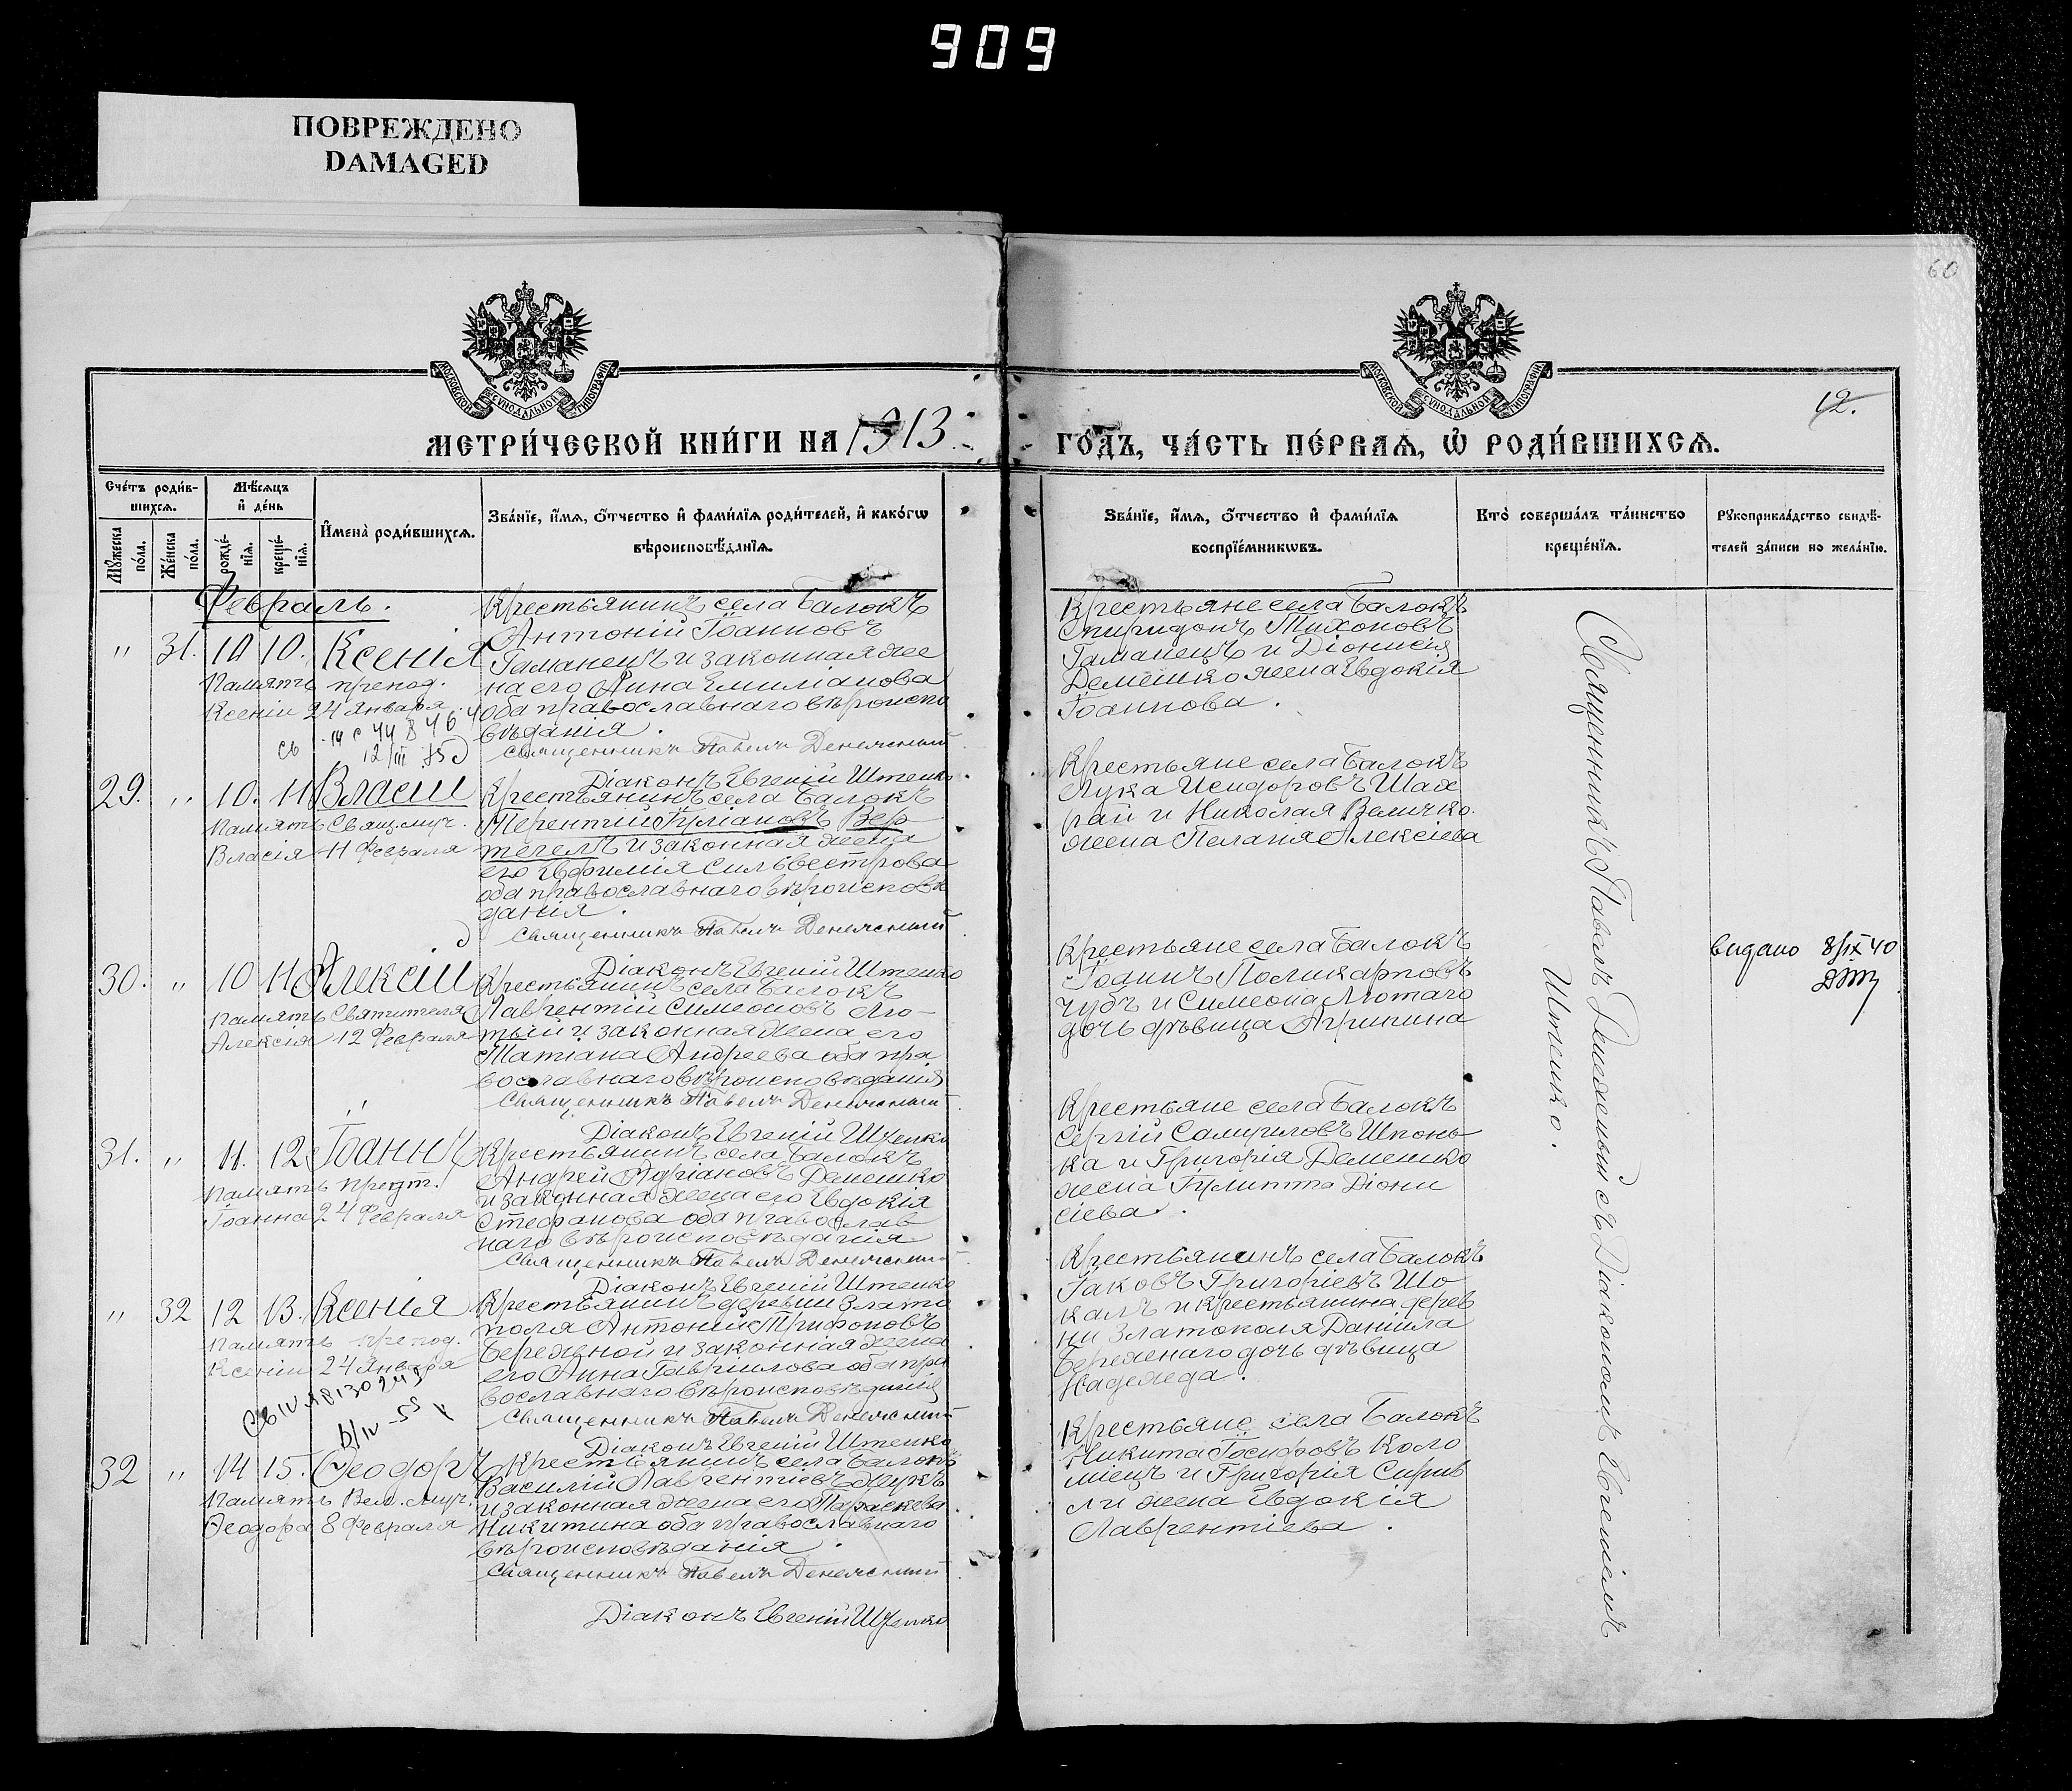 909
ПОВРЕЖДЕНО
DAMAGED
60
12.
МОСКОВСКОЙ СѴНОДАЛЬНОЙ ТИПОГРАФІИ
МОСКОВСКОЙ СѴНОДАЛЬНОЙ ТИПОГРАФІИ
МЕТРИ́ЧЕСКОЙ КНИ́ГИ НА 1913
ГО́ДЪ, ЧА́СТЬ ПЕ́РВАѦ, Ѡ҆ РОДИ́ВШИХСѦ.
Сче́тъ роди́в-
шихсѧ.
Мѣ́сѧцъ
и҆ де́нь
Мꙋ́жеска
по́ла.
Же́нска
по́ла.
рожде́-
нїѧ.
креще́-
нїѧ.
И҆мена̀ роди́вшихсѧ.
Зва́нїе, и҆́мѧ, ѻ҆́тчество и҆ фами́лїѧ роди́телей, и҆ како́гѡ
вѣроисповѣ́данїѧ.
Зва́нїе, и҆́мѧ, ѻ҆́тчество и҆ фами́лїѧ
воспрїе́мникѡвъ.
Кто̀ соверша́лъ та́инство
креще́нїѧ.
Рꙋкоприкла́дство свидѣ́-
телей за́писи по жела́нїю.
Февраль.
" 31. 10 10. Ксенія
Память препод.
Ксеніи 24 Января
12/III
Крестьянинъ села Балокъ
Антоній Іоанновъ
Гаманецъ и законная же
на его Анна Емиліанова
оба православнаго вѣроиспо
вѣданія.
Священникъ Павелъ
Діаконъ Евгеній Штенко
Крестьяне села Балокъ
Спиридонъ Тихоновъ
Гаманецъ и Діонисія
Демешко жена Евдокія
Іоаннова.
29. " 10. 11 Власій
Память Свящ. муч.
Власія 11 Февраля
Крестьянинъ села Балокъ
Терентій Іуліановъ Вер
тегелъ и законная жена
его Евфимія Сильвестрова
оба православнаго вѣроисповѣ
данія.
Священникъ Павелъ
Діаконъ Евгеній Штенко
Крестьяне села Балокъ
Лука Исидоровъ Шах
рай и Николая Величко
жена Пелагія Алексіева
30. " 10 11 Алексій
Память Святителя
Алексія 12 Февраля
Крестьянинъ села Балокъ
Лаврентій Симеоновъ Лю-
тый и законная жена его
Татіана Андреева оба пра
вославнаго вѣроисповѣданія
Священникъ Павелъ
Діаконъ Евгеній Штенко
Крестьяне села Балокъ
Іоаннъ Поликарповъ
Чубъ и Симеона Лютаго
дочь дѣвица Агрипина
видано 8/IX 40
31. " 11. 12 Іоаннъ
Память предт.
Іоанна 24 Февраля
Крестьянинъ села Балокъ
Андрей Адріановъ Демешко
и законная жена его Евдокія
Стефанова оба православ
наго вѣроисповѣданія
Священникъ Павелъ
Діаконъ Евгеній Штенко
Крестьяне села Балокъ
Сергій Самуиловъ Шпонь
ка и Григорія Демешко
жена Іулитта Діони
сіева.
" 32 12 13. Ксенія
Память препод.
Ксеніи 24 Января
Крестьянинъ деревни Злато
поля Антоній Трифоновъ
Бережной и законная жена
его Анна Гавріилова оба пра
вославнаго вѣроисповѣданія
Священникъ Павелъ
Діаконъ Евгеній Штенко
Крестьянинъ села Балокъ
Іаковъ Григоріевъ Шо
калъ и крестьянина дерев
ни Златополя Даніила
Бережнаго дочь дѣвица
Надежда.
32 " 14 15. Ѳеодоръ
Память Вел. муч.
Ѳеодора 8 Февраля
Крестьянинъ села Балокъ
Василій Лаврентіевъ Жукъ
и законная жена его Параскева
Никитина оба православнаго
вѣроисповѣданія.
Священникъ Павелъ
Діаконъ Евгеній Штенко
Крестьяне села Балокъ
Никита Іосифовъ Коло
міецъ и Григорія
жена Евдокія
Лаврентіева.
Священникъ Павелъ съ Діакономъ Евгеніемъ
Штенко.